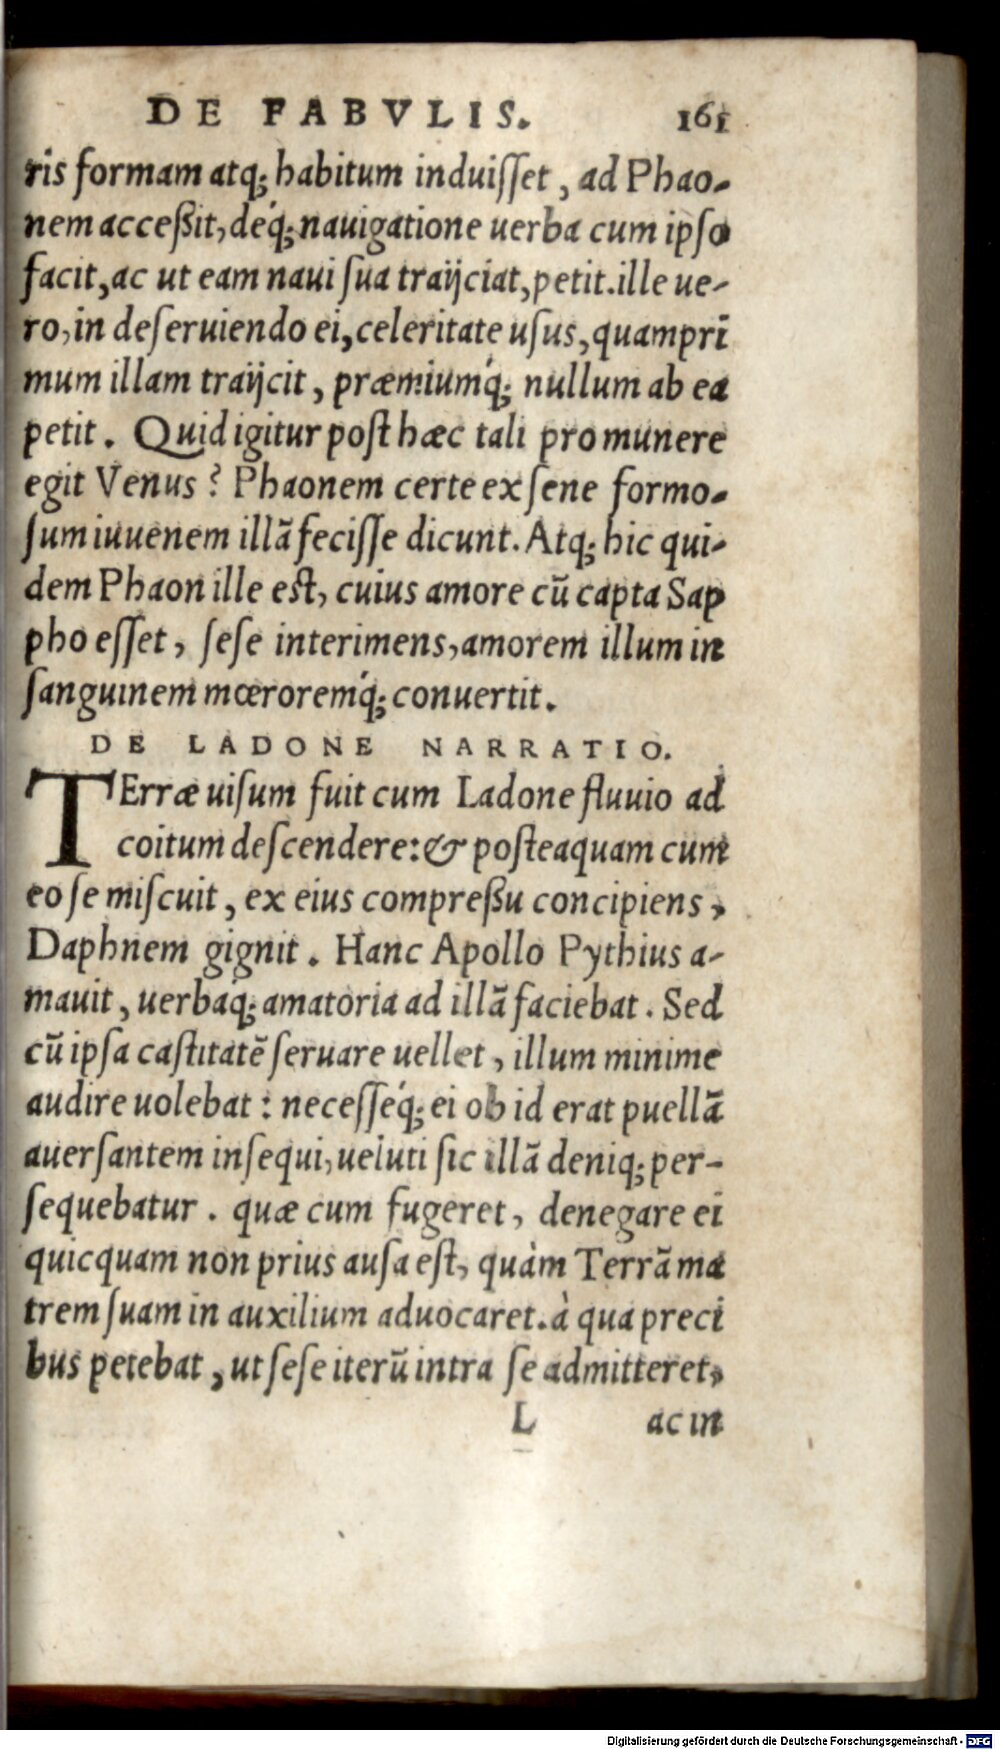 DE FABVLIS. 161
ris formam atq; habitum induiſſet, ad Phao-
nem acceßit, deq́; nauigatione uerba cum ipſo
facit, ac ut eam naui ſua traijciat, petit. ille ue-
ro, in deſeruiendo ei, celeritate uſus, quamprī
mum illam traijcit, præmiumq́; nullum ab ea
petit. Quid igitur poſt hæc tali pro munere
egit Venus? Phaonem certe ex ſene formo-
ſum iuuenem illā feciſſe dicunt. Atq; hic qui-
dem Phaon ille eſt, cuius amore cū capta Sap
pho eſſet, ſeſe interimens, amorem illum in
ſanguinem mœroremq́; conuertit.
DE LADONE NARRATIO.
TErræ uiſum fuit cum Ladone fluuio ad
coitum deſcendere: & poſteaquam cum
eo ſe miſcuit, ex eius compreßu concipiens,
Daphnem gignit. Hanc Apollo Pythius a-
mauit, uerbaq́; amatoria ad illā faciebat. Sed
cū ipſa caſtitatē ſeruare uellet, illum minime
audire uolebat: neceſſeq́; ei ob id erat puellā
auerſantem inſequi, ueluti ſic illā deniq; per-
ſequebatur. quæ cum fugeret, denegare ei
quicquam non prius auſa eſt, quàm Terrā ma
trem ſuam in auxilium aduocaret. à qua preci
bus petebat, ut ſeſe iterū intra ſe admitteret,
L ac in
Digitalisierung gefördert durch die Deutsche Forschungsgemeinschaft - DFG